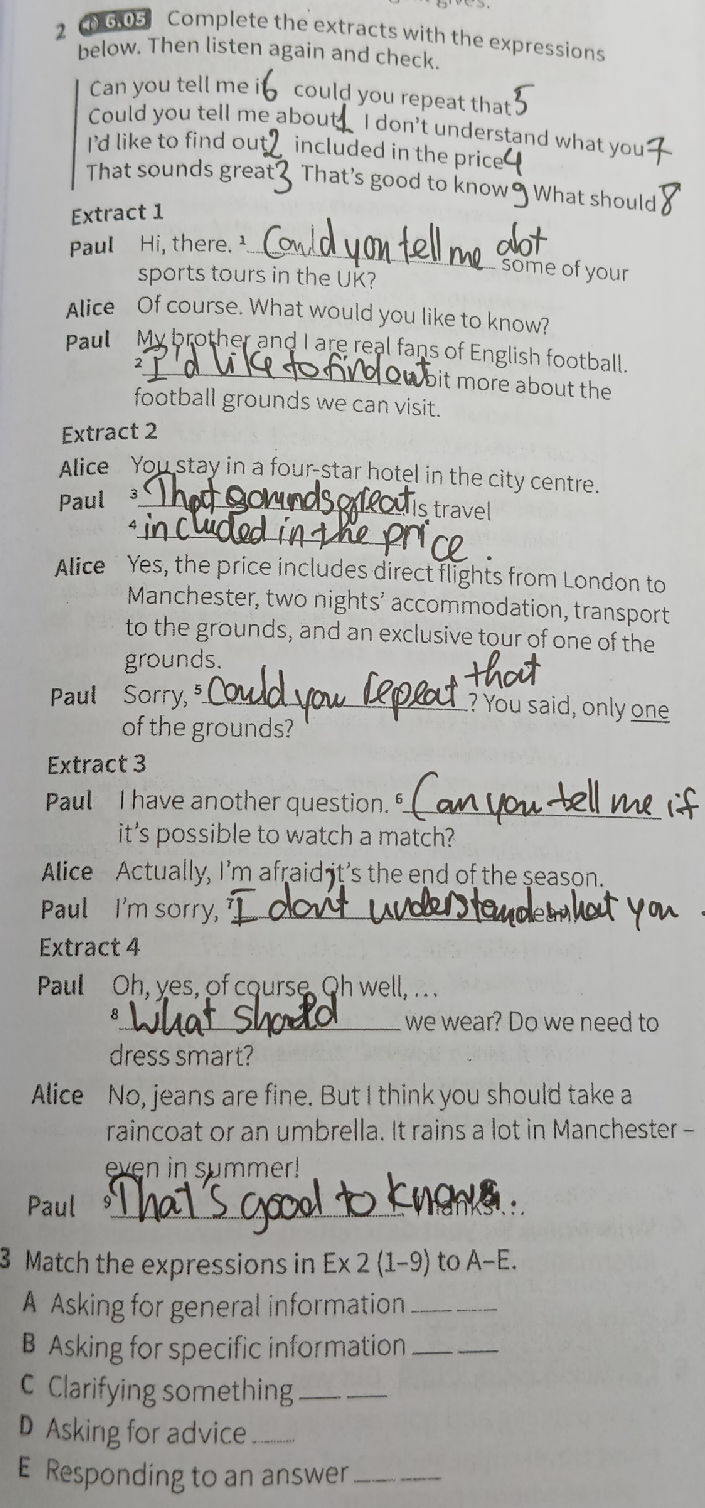 gives.
2 6.05 Complete the extracts with the expressions
below. Then listen again and check.
Can you tell me if 6 could you repeat that 5
Could you tell me about 1 I don't understand what you 7
I'd like to find out 2 included in the price 4
That sounds great 3 That's good to know 9 What should 8
Extract 1
Paul Hi, there. ¹ Could you tell me some of your
sports tours in the UK?
Alice Of course. What would you like to know?
Paul My brother and I are real fans of English football.
² I'd like to find out bit more about the
football grounds we can visit.
Extract 2
Alice You stay in a four-star hotel in the city centre.
Paul ³ That sounds great Is travel
⁴ included in the price.
Alice Yes, the price includes direct flights from London to
Manchester, two nights' accommodation, transport
to the grounds, and an exclusive tour of one of the
grounds.
Paul Sorry, ⁵ Could you repeat that ? You said, only one
of the grounds?
Extract 3
Paul I have another question. ⁶ Can you tell me if
it's possible to watch a match?
Alice Actually, I'm afraid it's the end of the season.
Paul I'm sorry, ⁷ I don't understand what you
Extract 4
Paul Oh, yes, of course. Oh well, ...
⁸ What should we wear? Do we need to
dress smart?
Alice No, jeans are fine. But I think you should take a
raincoat or an umbrella. It rains a lot in Manchester –
even in summer!
Paul ⁹ That's good to know
3 Match the expressions in Ex 2 (1–9) to A–E.
A Asking for general information ____ ____
B Asking for specific information ____ ____
C Clarifying something ____ ____
D Asking for advice ____
E Responding to an answer ____ ____